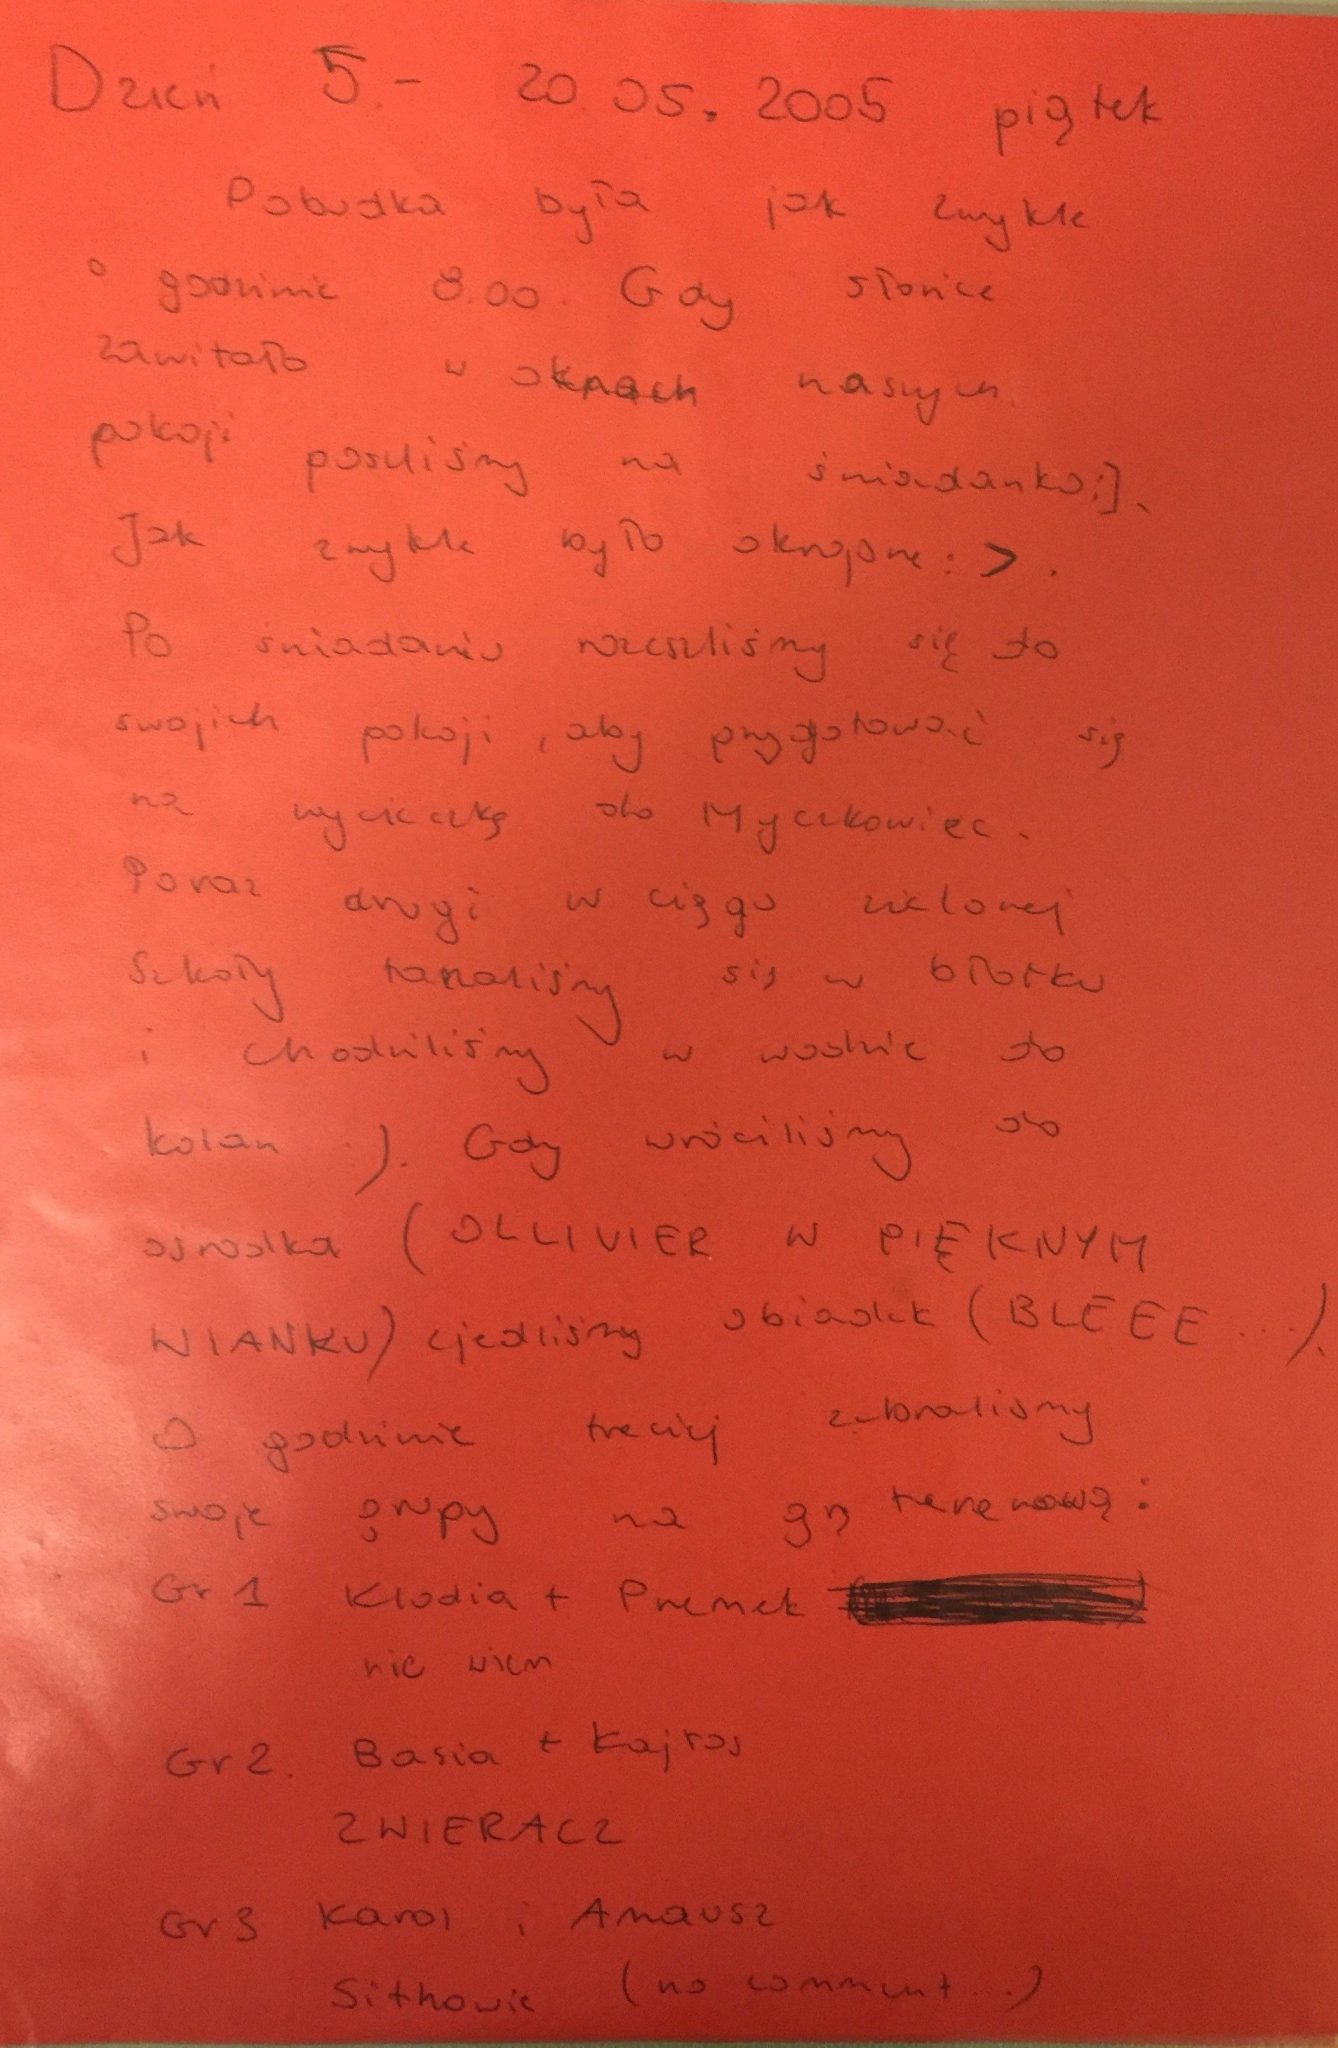 Dzień 5.- 20.05.2005 piątek
Pobudka była jak zwykle
o godzinie 8.00. Gdy słońce
zawitało w oknach naszych
pokoji poszliśmy na śniadanko:].
Jak zwykle było okropne :>.
Po śniadaniu rozeszliśmy się do
swojich pokoji, aby przygotować się
na wycieczkę do Myczkowiec.
Poraz drugi w ciągu zielonej
Szkoły taplaliśmy się w błotku
i chodziliśmy w wodzie do
kolan :). Gdy wróciliśmy do
ośrodka (OLLIVIER W PIĘKNYM
WIANKU) zjedliśmy obiadek (BLEEE ...).
O godzinie trzeciej zebralismy
swoje grupy na grę terenową:
Gr 1 Klodia + Przemek
nie wiem
Gr 2. Basia + Kajtos
ZWIERACZ
Gr 3 Karol i Amausz
Sithowie (no comment...)